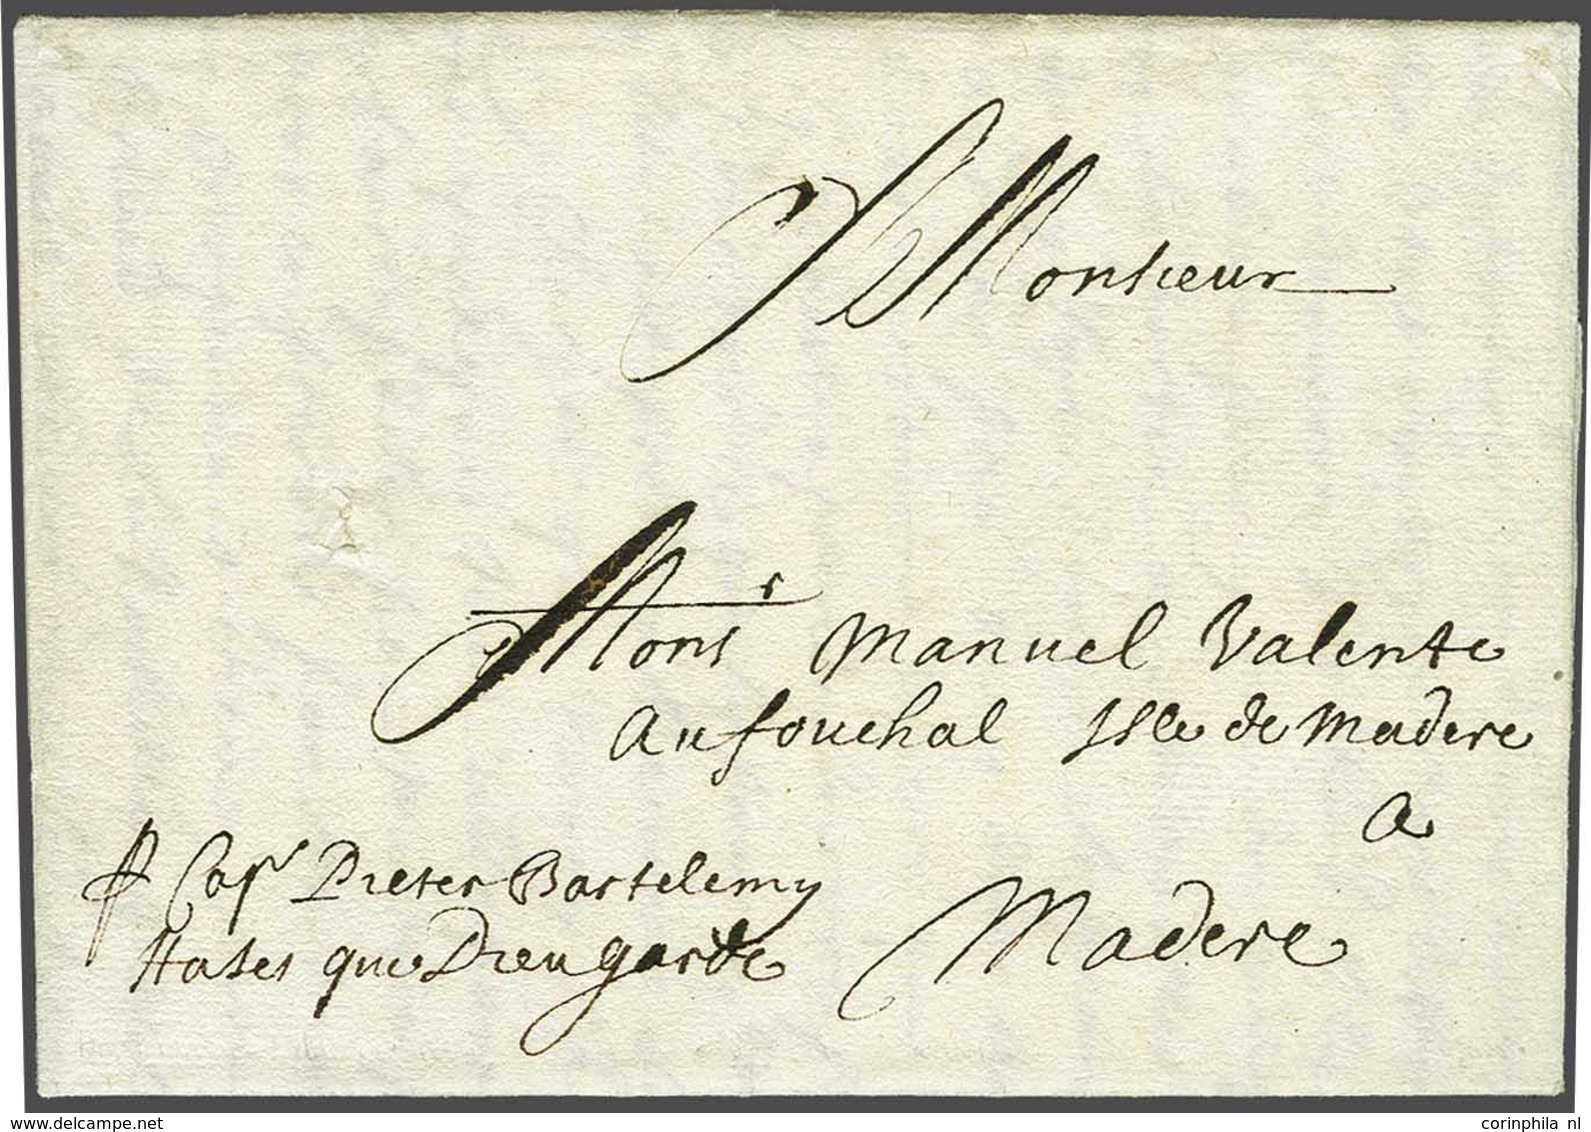 A Monsieur
Mons.r Manuel Valente
Au fouchal Isle de Madere
a
Madere
p Cap.n Pieter Bartelemy
Hases que Dieu garde
www.delcampe.net
corinphila nl